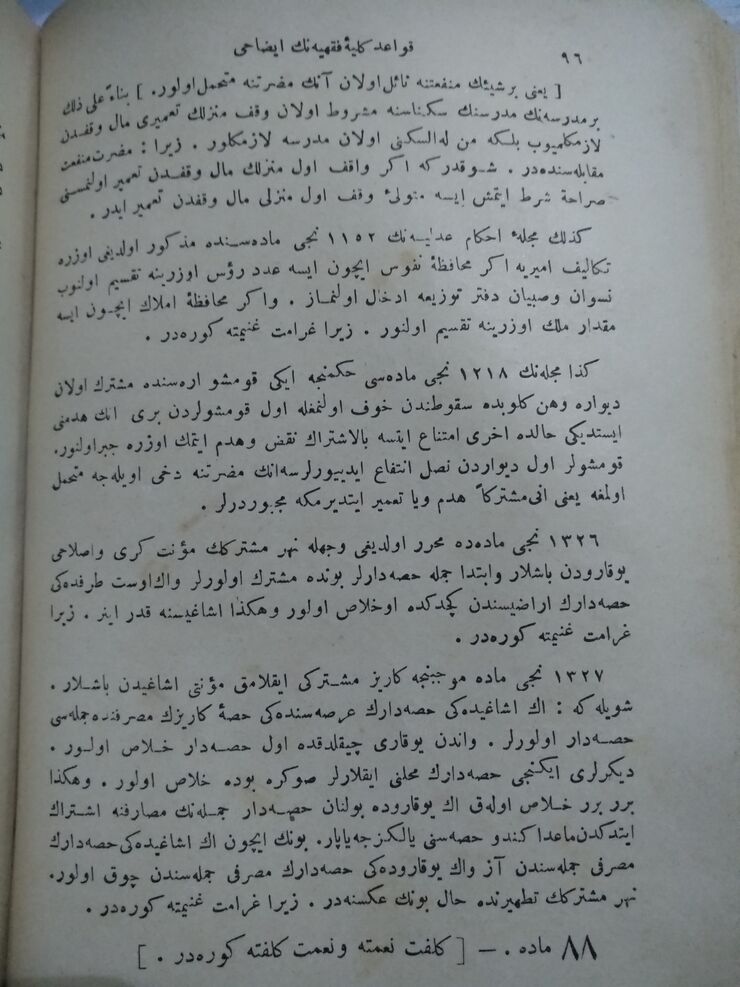 ٩٦
قواعد كليهٔ فقهيه نك ايضاحى
[ يعنى برشيئك منفعتنه نائل اولان آنك مضرتنه متحمل اولور . ] بناءً على ذلك
برمدرسه نك مدرسنك سكناسنه مشروط اولان وقف منزلك تعميرى مال وقفدن
لازمكلميوب بلكه من له السكنى اولان مدرسه لازمكلور . زيرا : مضرت منفعت
مقابله سنده در . شوقدركه اكر واقف اول منزلك مال وقفدن تعمير اولنمسنى
صراحة شرط ايتمش ايسه متولئ وقف اول منزلى مال وقفدن تعمير ايدر .
كذلك مجلهٔ احكام عدليه نك ١١٥٢ نجى ماده سنده مذكور اولديغى اوزره
تكاليف اميريه اكر محافظهٔ نفوس ايچون ايسه عدد رؤس اوزرينه تقسيم اولنوب
نسوان وصبيان دفتر توزيعه ادخال اولنماز . واكر محافظهٔ املاك ايچون ايسه
مقدار ملك اوزرينه تقسيم اولنور . زيرا غرامت غنيمته كوره در .
كذا مجله نك ١٢١٨ نجى ماده سى حكمنجه ايكى قومشو اره سنده مشترك اولان
ديواره وهن كلوبده سقوطندن خوف اولنمغله اول قومشولردن برى انك هدمنى
ايستديكى حالده اخرى امتناع ايتسه بالاشتراك نقض وهدم ايتمك اوزره جبراولنور.
قومشولر اول ديواردن نصل انتفاع ايدييورلرسه انك مضرتنه دخى اويله جه متحمل
اولمغه يعنى انى مشتركاً هدم ويا تعمير ايتديرمكه مجبوردرلر .
١٣٢٦ نجى ماده ده محرر اولديغى وجهله نهر مشتركك مؤنت كرى واصلاحى
يوقارودن باشلار وابتدا جمله حصه دارلر بونده مشترك اولورلر واك اوست طرفده كى
حصه دارك اراضيسندن كچدكده اوخلاص اولور وهكذا اشاغيسنه قدر اينر . زيرا
غرامت غنيمته كوره در .
١٣٢٧ نجى ماده موجبنجه كاريز مشتركى ايقلامق مؤنتى اشاغيدن باشلار .
شويله كه : اك اشاغيده كى حصه دارك عرصه سنده كى حصهٔ كاريزك مصرفنده جمله سى
حصه دار اولورلر . واندن يوقارى چيقلدقده اول حصه دار خلاص اولور .
ديكرلرى ايكنجى حصه دارك محلنى ايقلارلر صوكره بوده خلاص اولور . وهكذا
برر برر خلاص اوله‌ق اك يوقاروده بولنان حصه دار جمله نك مصارفنه اشتراك
ايتدكدن ماعدا كندو حصه سنى يالكزجه ياپار. بونك ايچون اك اشاغيده كى حصه دارك
مصرفى جمله سندن آز واك يوقاروده كى حصه دارك مصرفى جمله سندن چوق اولور.
نهر مشتركك تطهيرنده حال بونك عكسنه در . زيرا غرامت غنيمته كوره در .
٨٨ ماده . — [ كلفت نعمته ونعمت كلفته كوره در . ]